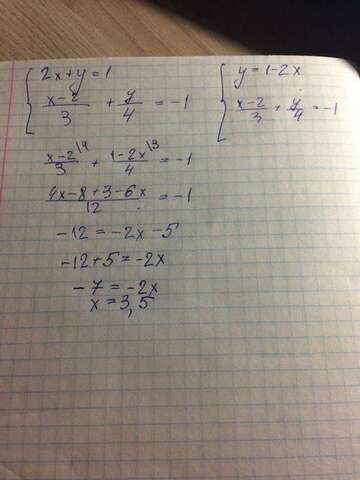 { 2x+y=1
{ (x-2)/3 + y/4 = -1
{ y=1-2x
{ (x-2)/3 + y/4 = -1
(x-2)/3 \4 + (1-2x)/4 \3 = -1
(4x-8+3-6x)/12 = -1
-12 = -2x-5
-12+5 = -2x
-7 = -2x
x = 3,5